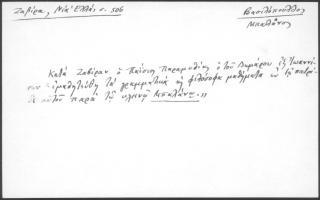 Ζαβίρα, Νέα Ἑλλάς σ. 506
Βασιλόπουλος
Μπαλάνος
Κατὰ Ζαβίραν ὁ Παΐσιος Παραμυθίας ὁ τοῦ ἐξ Ἰωαννί-
νων ἐμαθητεύθη τὰ γραμματικὰ καὶ φιλόσοφα μαθήματα ἐν τῇ πατρί-
δι αὐτοῦ παρὰ τῷ Μπαλάνῳ.»